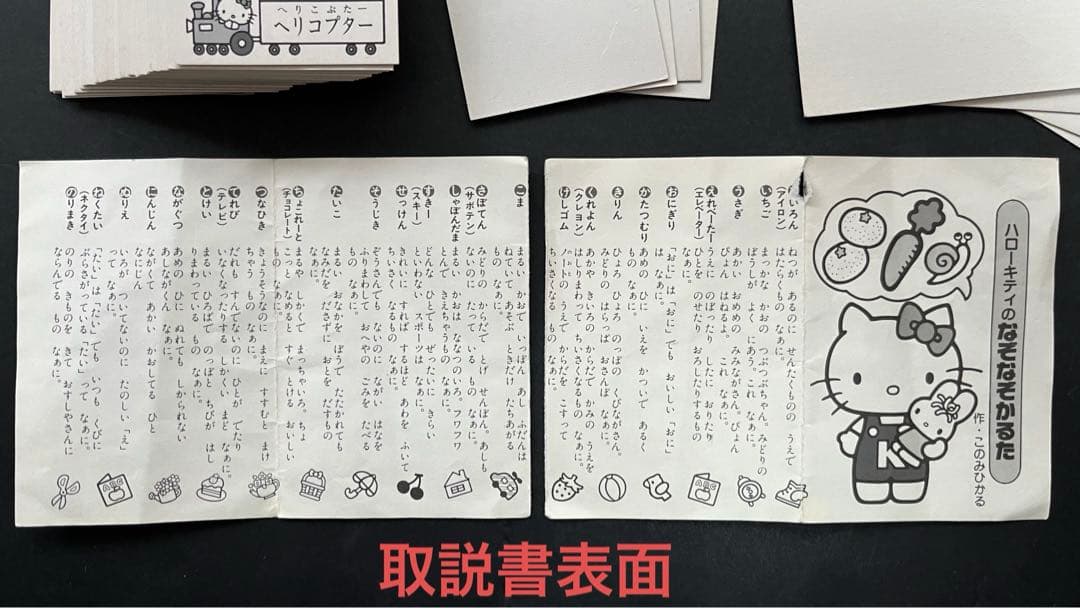 へりこぷたー
ヘリコプター
ハローキティの
なぞなぞかるた
作・このみひかる
いろん
(アイロン)
ねつが あるのに せんたくものの うえで
はたらくもの なあに。
いちご
まっかな かおの つぶつぶちゃん。みどりの
ぼうしが よく にあう。これ なあに。
うさぎ
あかい おめめの みみながさん。ぴょん
ぴょん はねるよ。なあに。
えれべーたー
(エレベーター)
うえに のぼったり したに おりたり
ひとを のせたり おろしたりするもの
なあに。
おにぎり
「おに」は 「おに」でも おいしい 「おに」
は なあに。
かたつむり
あめの ひに いえを かついで あるく
もの なあに。
きりん
ひょろ ひょろ のっぽの くびながさん。
みどりの はらっぱ おさんぽ なあに。
くれよん
(クレヨン)
あかや きいろの からだで かみの うえを
はしりまわって いるもの なあに。
けしゴム
ノートの うえで からだを こすって
ちいさくなる もの なあに。
こま
まるい かおで いっぽん あし ふだんは
ねていて あそぶ ときだけ たちあがる
もの なあに。
さぼてん
(サボテン)
みどりの からだで とげ せんぼん。あしも
ないのに たって いる もの なあに。
しゃぼんだま
まるい かおは ななつの いろ。フワフワ
とんで きえちゃうもの なあに。
すきー
(スキー)
どんな ひとでも ぜったいに きらい
といわない スポーツは なあに。
せっけん
きれいに すれば するほど あわを ふいて
ちいさく なるもの なあに。
そうじき
ぞうさんでも ないのに ながい はなを
もって おへやの ごみを たべる
もの なあに。
たいこ
まるい おなかを ぼうで たたかれても
なみだ ださずに おとを だすもの
なあに。
ちょこれーと
(チョコレート)
まるや しかくで まっちゃいろ。ちょ
こっと なめると すぐ とける おいしい
もの なあに。
つなひき
きょうそうなのに まえに すすむと まけ
ちゃう もの なあに。
てれび
(テレビ)
だれも すんでないのに ひとが でたり
いなくなったりする しかくい まど なあに。
とけい
まるい ひろばで のっぽと ちびが はし
りまわっている もの なあに。
ながぐつ
あめの ひに ぬれても しかられない
あしながくん なあに。
にんじん
ながくて あかい かおしてる ひと
なあに。
ぬりえ
いろが ついてないのに たのしい 「え」
って なあに。
ねくたい
(ネクタイ)
「たい」は 「たい」でも いつも くびに
ぶらさがっている 「たい」って なあに。
のりまき
のりの きものを きて おすしやさんに
ならんでる もの なあに。
ABC
K
取説書表面